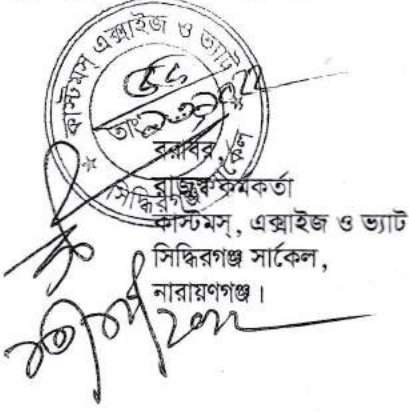 কাস্টমস এক্সাইজ ও ভ্যাট
সিদ্ধিরগঞ্জ সার্কেল
তাং
বরাবর,
রাজস্ব কর্মকর্তা
কাস্টমস্, এক্সাইজ ও ভ্যাট
সিদ্ধিরগঞ্জ সার্কেল,
নারায়ণগঞ্জ।